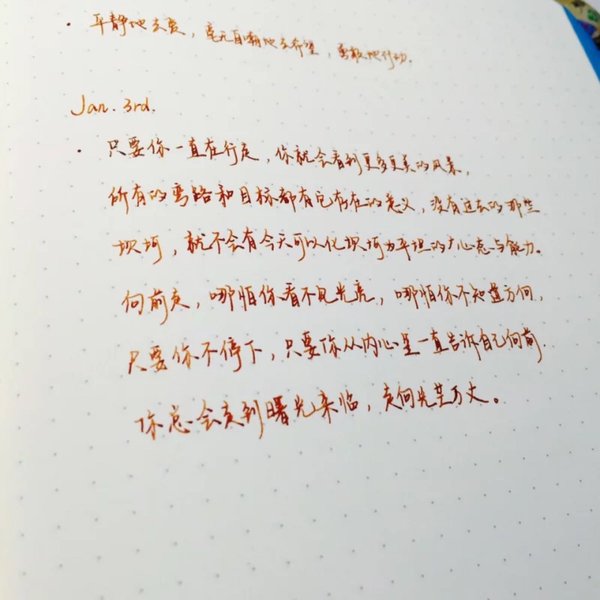 · 平静地去爱，毫无自嘲地去希望，勇敢地行动.
Jan. 3rd.
· 只要你一直在行走，你就会看到更多更美的风景，
所有的弯路和目标都有它存在的意义，没有过去的那些
坎坷，就不会有今天可以化坎坷为平坦的心态与能力。
向前走，哪怕你看不见光亮，哪怕你不知道方向，
只要你不停下，只要你从内心里一直告诉自己向前，
你总会走到曙光来临，走向光芒万丈。